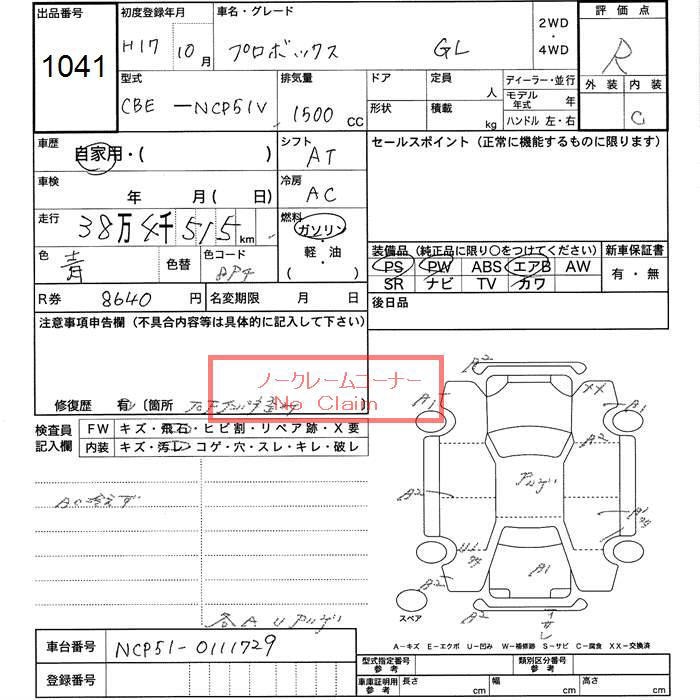 出品番号
1041
初度登録年月
H17 10月
車名・グレード
プロボックス GL
2WD
・
4WD
評価点
R
外装 内装
C
型式
CBE －NCP51V
排気量
1500 CC
ドア
形状
定員 人
積載 kg
ディーラー・並行
モデル年式 年
ハンドル 左・右
車歴
自家用・( )
シフト
AT
車検
年 月( 日)
冷房
AC
走行
38万4千515km
燃料
ガソリン
・
軽・油
( )
色
青
色替
色コード
8P4
R券 8640 円
名変期限 月 日
セールスポイント（正常に機能するものに限ります）
装備品（純正品に限り○をつけてください）
PS PW ABS エアB AW
SR ナビ TV カワ
新車保証書
有・無
後日品
注意事項申告欄（不具合内容等は具体的に記入して下さい）
ノークレームコーナー
No Claim
修復歴 有 〔箇所
検査員記入欄
FW キズ・飛石・ヒビ割・リペア跡・X要
内装 キズ・汚レ・コゲ・穴・スレ・キレ・破レ
AC冷えず
各A U アリ
A2
A1
XX
A1
A2
A1
A2
A1
A2
A2
スペア
A－キズ E－エクボ U－凹み W－補修跡 S－サビ C－腐食 XX－交換済
車台番号 NCP51-0111729
登録番号
型式指定番号 参考
類別区分番号 参考
車庫証明用 参考
長さ cm
幅 cm
高さ cm